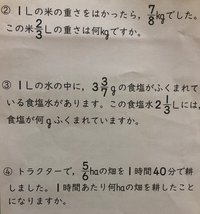 ② 1Lの米の重さをはかったら，7/8kgでした。
この米2/3Lの重さは何kgですか。
③ 1Lの水の中に，3 3/7gの食塩がふくまれて
いる食塩水があります。この食塩水2 1/3Lには，
食塩が何gふくまれていますか。
④ トラクターで，5/6haの畑を1時間40分で耕
しました。1時間あたり何haの畑を耕したこと
になりますか。